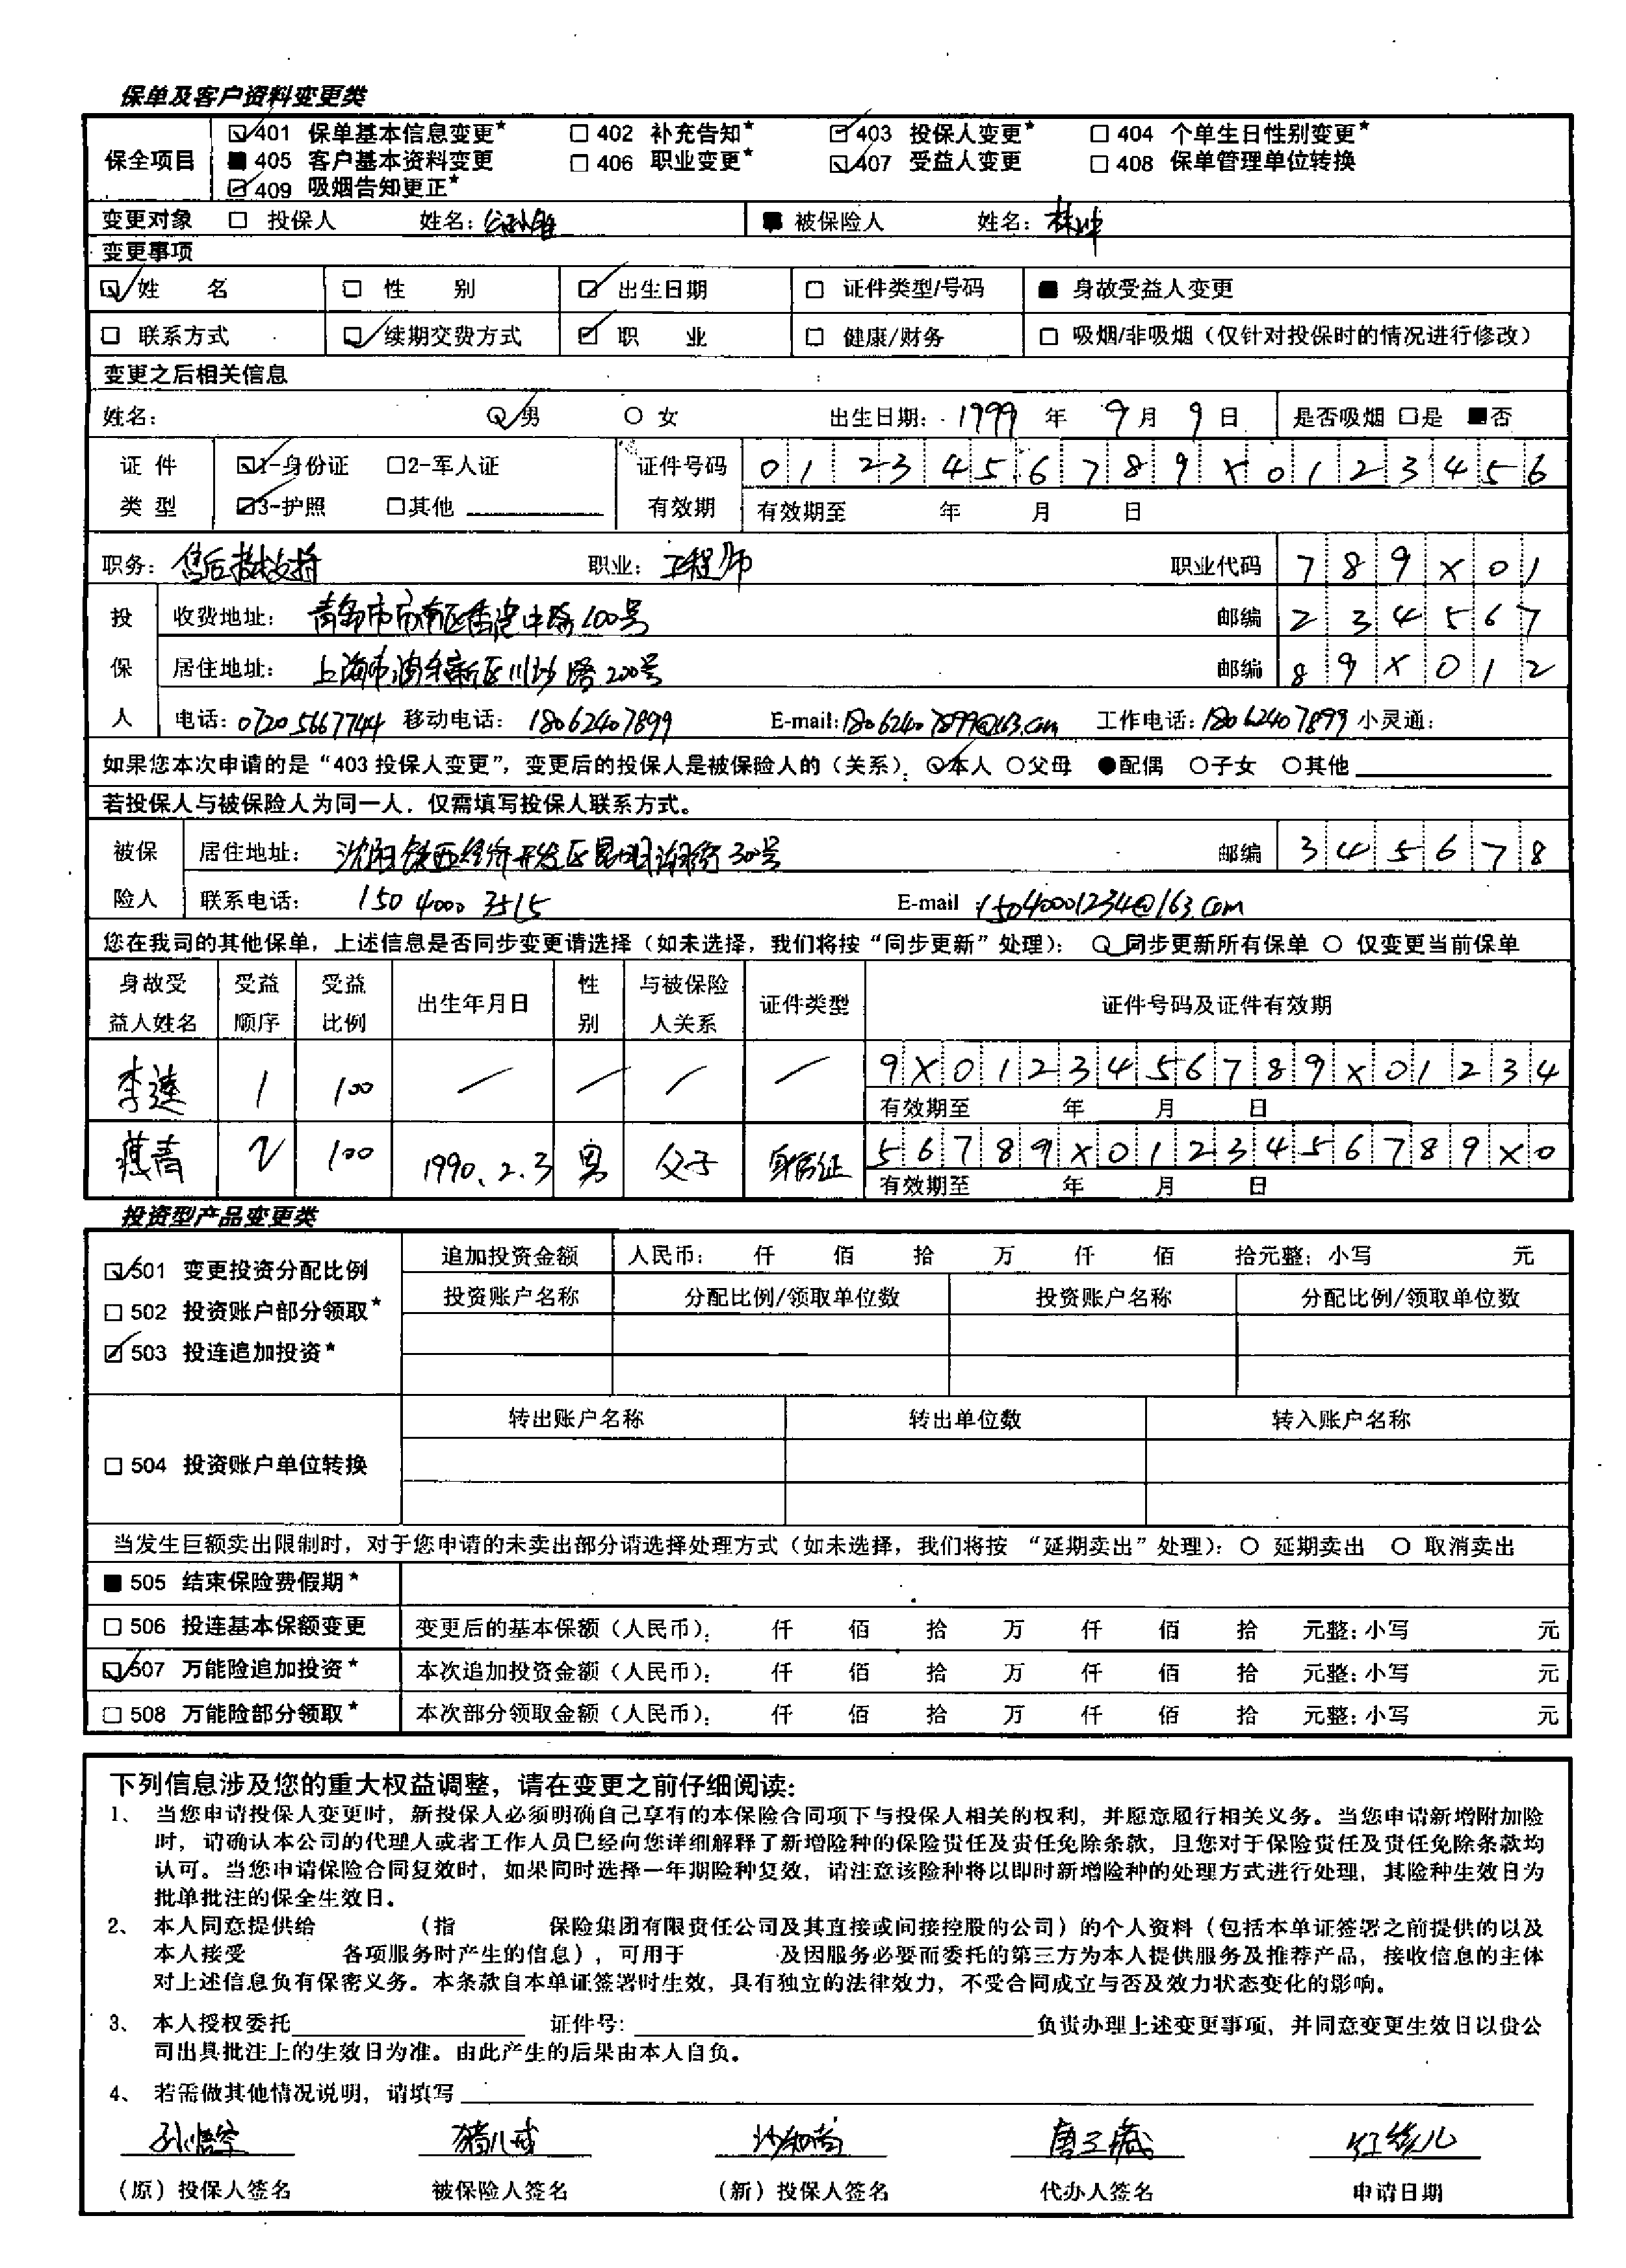 保单及客户资料变更类
保全项目
☑401 保单基本信息变更* □402 补充告知* ☑403 投保人变更* □404 个单生日性别变更*
■405 客户基本资料变更 □406 职业变更* ☑407 受益人变更 □408 保单管理单位转换
☑409 吸烟告知更正*
变更对象 □ 投保人 姓名：公孙胜 ■ 被保险人 姓名：林冲
变更事项
☑ 姓 名 □ 性 别 ☑ 出生日期 □ 证件类型/号码 ■ 身故受益人变更
□ 联系方式 ☑ 续期交费方式 ☑ 职 业 □ 健康/财务 □ 吸烟/非吸烟（仅针对投保时的情况进行修改）
变更之后相关信息
姓名： ☑男 ○ 女 出生日期：1999 年 9月 9日 是否吸烟 □是 ■否
证件类型 ☑1-身份证 □2-军人证 证件号码 0123456789X0123456
☑3-护照 □其他 有效期 有效期至 年 月 日
职务：售后技支持 职业：工程师 职业代码 789X01
投保人 收费地址：青岛市市南区香港中路100号 邮编 234567
居住地址：上海市浦东新区川沙路200号 邮编 89X012
电话：07205667744 移动电话：18062407899 E-mail：18062407899@163.com 工作电话：18062407899 小灵通：
如果您本次申请的是“403 投保人变更”，变更后的投保人是被保险人的（关系）：☑本人 ○父母 ●配偶 ○子女 ○其他
若投保人与被保险人为同一人，仅需填写投保人联系方式。
被保险人 居住地址：沈阳铁西经济开发区昆明湖街30号 邮编 345678
联系电话：150 4000 3515 E-mail：15040001234@163.com
您在我司的其他保单，上述信息是否同步变更请选择（如未选择，我们将按“同步更新”处理）：☑ 同步更新所有保单 ○ 仅变更当前保单
身故受益人姓名 受益顺序 受益比例 出生年月日 性别 与被保险人关系 证件类型 证件号码及证件有效期
李逵 1 100 — — — — 9X0123456789X01234
有效期至 年 月 日
燕青 2 100 1990.2.3 男 父子 身份证 56789X0123456789X0
有效期至 年 月 日
投资型产品变更类
☑501 变更投资分配比例
□502 投资账户部分领取*
☑503 投连追加投资*
追加投资金额 人民币： 仟 佰 拾 万 仟 佰 拾元整；小写 元
投资账户名称 分配比例/领取单位数 投资账户名称 分配比例/领取单位数
转出账户名称 转出单位数 转入账户名称
□504 投资账户单位转换
当发生巨额卖出限制时，对于您申请的未卖出部分请选择处理方式（如未选择，我们将按 “延期卖出” 处理）：○ 延期卖出 ○ 取消卖出
■505 结束保险费假期*
□506 投连基本保额变更 变更后的基本保额（人民币）： 仟 佰 拾 万 仟 佰 拾 元整；小写 元
☑507 万能险追加投资* 本次追加投资金额（人民币）： 仟 佰 拾 万 仟 佰 拾 元整；小写 元
□508 万能险部分领取* 本次部分领取金额（人民币）： 仟 佰 拾 万 仟 佰 拾 元整；小写 元
下列信息涉及您的重大权益调整，请在变更之前仔细阅读：
1、 当您申请投保人变更时，新投保人必须明确自己享有的本保险合同项下与投保人相关的权利，并愿意履行相关义务。当您申请新增附加险
时，请确认本公司的代理人或者工作人员已经向您详细解释了新增险种的保险责任及责任免除条款，且您对于保险责任及责任免除条款均
认可。当您申请保险合同复效时，如果同时选择一年期险种复效，请注意该险种将以即时新增险种的处理方式进行处理，其险种生效日为
批单批注的保全生效日。
2、 本人同意提供给 （指 保险集团有限责任公司及其直接或间接控股的公司）的个人资料（包括本单证签署之前提供的以及
本人接受 各项服务时产生的信息），可用于 及因服务必要而委托的第三方为本人提供服务及推荐产品，接收信息的主体
对上述信息负有保密义务。本条款自本单证签署时生效，具有独立的法律效力，不受合同成立与否及效力状态变化的影响。
3、 本人授权委托 证件号： 负责办理上述变更事项，并同意变更生效日以贵公
司出具批注上的生效日为准。由此产生的后果由本人自负。
4、 若需做其他情况说明，请填写
孙悟空 猪八戒 沙和尚 唐三藏 红孩儿
（原）投保人签名 被保险人签名 （新）投保人签名 代办人签名 申请日期